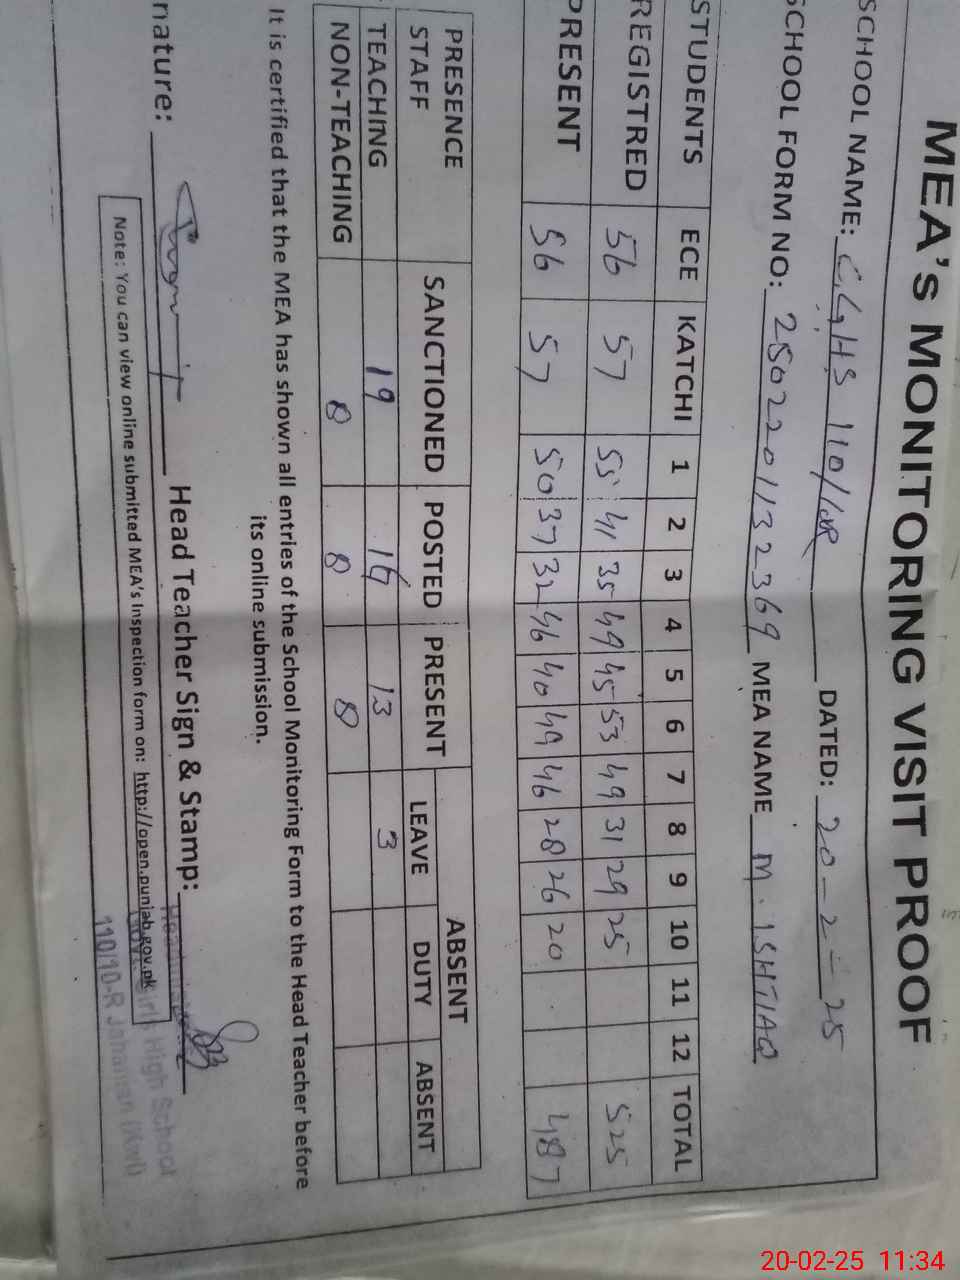 MEA's MONITORING VISIT PROOF
SCHOOL NAME: G.GHS 110/10R DATED: 20-2-25
SCHOOL FORM NO: 2502201132369 MEA NAME M. ISHTIAQ
STUDENTS ECE KATCHI 1 2 3 4 5 6 7 8 9 10 11 12 TOTAL
REGISTRED 56 57 55 41 35 49 45 53 49 31 29 25 525
PRESENT 56 57 50 37 32 46 40 49 46 28 26 20 487
PRESENCE STAFF SANCTIONED POSTED PRESENT ABSENT
LEAVE DUTY ABSENT
TEACHING 19 16 13 3
NON-TEACHING 8 8 8
It is certified that the MEA has shown all entries of the School Monitoring Form to the Head Teacher before
its online submission.
nature: Head Teacher Sign & Stamp:
Note: You can view online submitted MEA's Inspection form on: http://open.punjab.gov.pk
Girls High School
110/10-R Jahanian (Kwl)
20-02-25 11:34